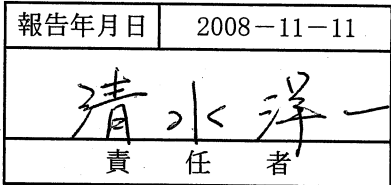 報告年月日 2008-11-11
清水洋一
責任者